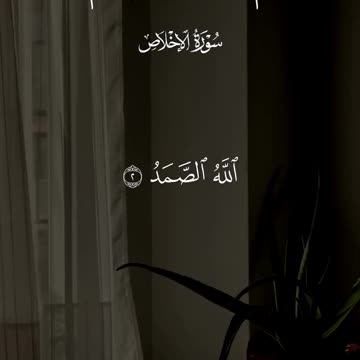 سُورَةُ الإِخْلَاصِ
ٱللَّهُ ٱلصَّمَدُ ٢